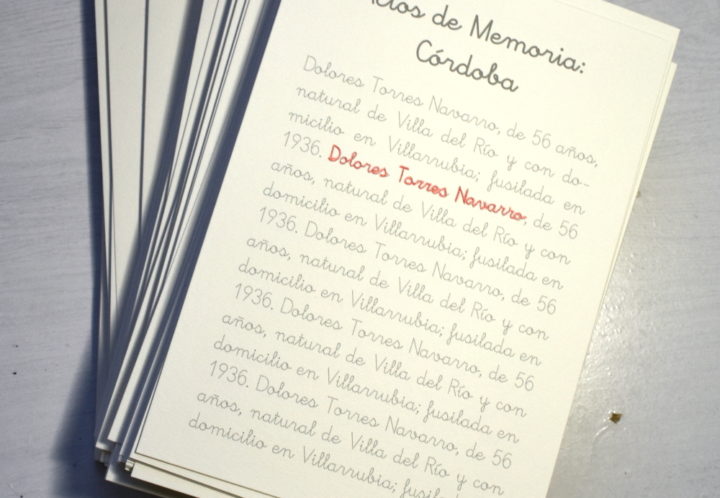 de Memoria:
Córdoba
Dolores Torres Navarro, de 56 años,
natural de Villa del Río y con do-
micilio en Villarrubia; fusilada en
1936. Dolores Torres Navarro, de 56
años, natural de Villa del Río y con
domicilio en Villarrubia; fusilada en
1936. Dolores Torres Navarro, de 56
años, natural de Villa del Río y con
domicilio en Villarrubia; fusilada en
1936. Dolores Torres Navarro, de 56
años, natural de Villa del Río y con
domicilio en Villarrubia; fusilada en
1936. Dolores Torres Navarro, de 56
años, natural de Villa del Río y con
domicilio en Villarrubia;